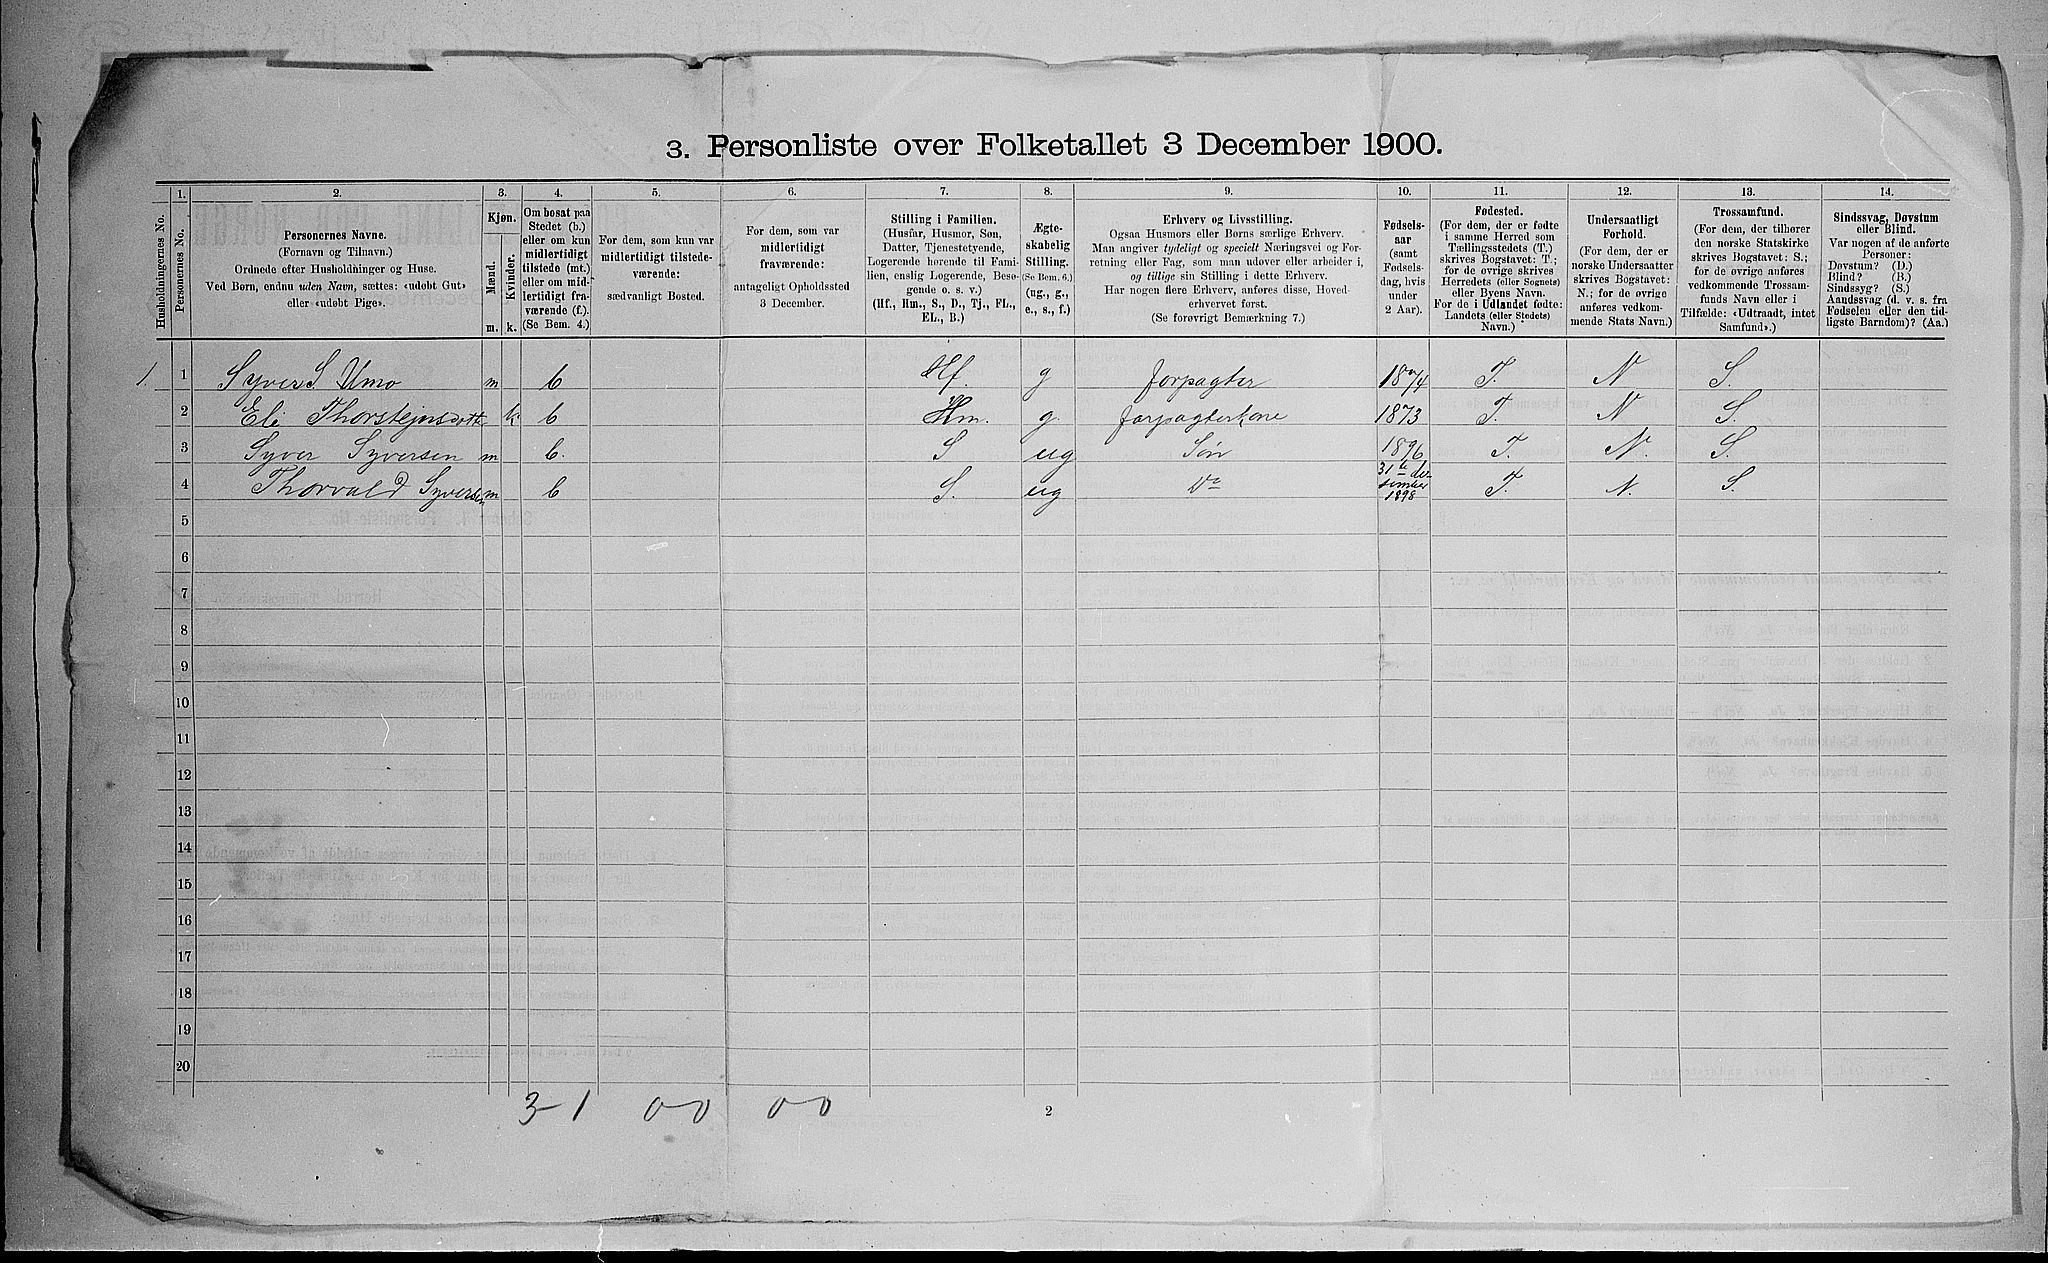 3. Personliste over Folketallet 3 December 1900.
1. 2. 3. 4. 5. 6. 7. 8. 9. 10. 11. 12. 13. 14.
Husholdningernes No.
Personernes No.
Personernes Navne.
(Fornavn og Tilnavn).
Ordnede efter Husholdninger og Huse.
Ved Børn, endnu uden Navn, sættes: «udøbt Gut»
eller «udøbt Pige».
Kjøn.
Mænd.
Kvinder.
m. k.
Om bosat paa
Stedet (b.)
eller om kun
midlertidigt
tilstede (mt.)
eller om mid-
lertidigt fra-
værende (f.).
(Se Bem. 4.)
For dem, som kun var
midlertidigt tilstede-
værende:
sædvanligt Bosted.
For dem, som var
midlertidigt
fraværende:
antageligt Opholdssted
3 December.
Stilling i Familien.
(Husfar, Husmor, Søn,
Datter, Tjenestetyende,
Logerende hørende til Fami-
lien, enslig Logerende, Besø-
gende o. s. v.)
(Hf., Hm., S., D., Tj., FL.,
EL., B.)
Ægte-
skabelig
Stilling.
(Se Bem. 6.)
(ug., g.,
e., s., f.)
Erhverv og Livsstilling.
Ogsaa Husmors eller Børns særlige Erhverv.
Man angiver tydeligt og specielt Næringsvei og For-
retning eller Fag, som man udøver eller arbeider i,
og tillige sin Stilling i dette Erhverv.
Har nogen flere Erhverv, anføres disse, Hoved-
erhvervet først.
(Se forøvrigt Bemærkning 7.)
Fødsels-
aar
(samt
Fødsels-
dag, hvis
under
2 Aar).
Fødested.
(For dem, der er fødte
i samme Herred som
Tællingsstedets (T.)
skrives Bogstavet: T.;
for de øvrige skrives
Herredets (eller Sognets)
eller Byens Navn.
For de i Udlandet fødte:
Landets (eller Stedets)
Navn.)
Undersaatligt
Forhold.
(For dem, der er
norske Undersaatter
skrives Bogstavet:
N.; for de øvrige
anføres vedkom-
mende Stats Navn.)
Trossamfund.
(For dem, der tilhører
den norske Statskirke
skrives Bogstavet: S.;
for de øvrige anføres
vedkommende Trossam-
funds Navn eller i
Tilfælde: «Udtraadt, intet
Samfund».)
Sindssvag, Døvstum
eller Blind.
Var nogen af de anførte
Personer:
Døvstum? (D.)
Blind? (B.)
Sindssyg? (S.)
Aandssvag (d. v. s. fra
Fødselen eller den tid-
ligste Barndom)? (Aa.)
1. 1 Syver S Umo m b Hf. g forpagter 1874 T. N S.
2 Eli Thorstejnsdott k b Hm. g. forpagterkone 1873 T. N S.
3 Syver Syversen m b. S ug Søn 1896 T. N. S.
4 Thorvald Syversen m b S. ug Do 31te december 1898 T. N. S.
5
6
7
8
9
10
11
12
13
14
15
16
17
18
19
20
3 - 1 0-0 0-0
2